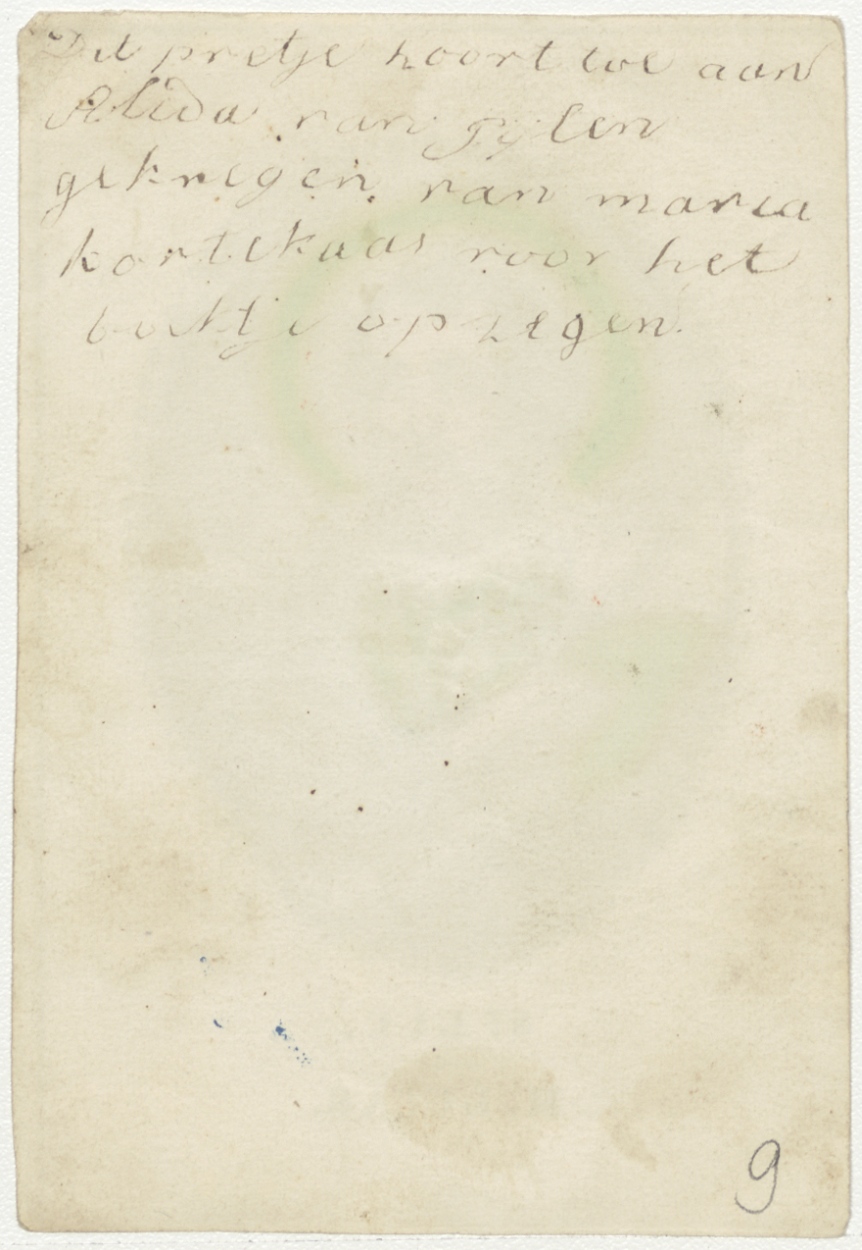 Dit pretje hoort toe aan
Alida van Pylen
gekregen van maria
kortekaas voor het
boektje op zegen.
9